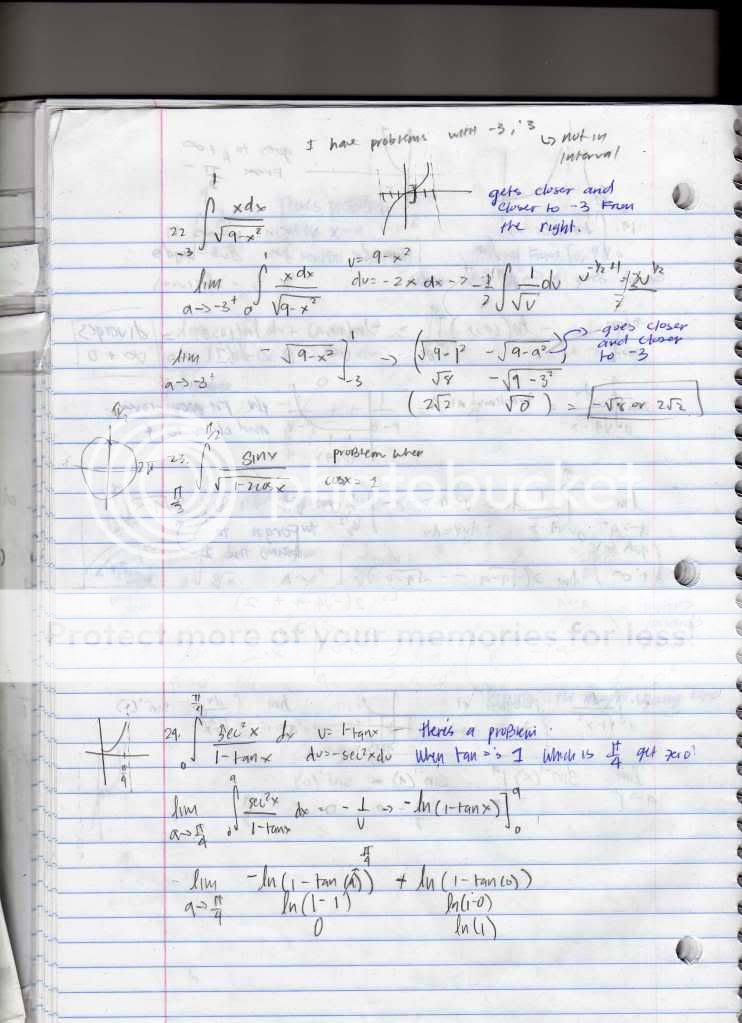 I have problems with -3, 3 ↳ not in interval
22 ∫_{-3}^{1} xdx/√(9-x²)
gets closer and
closer to -3 From
the right.
lim a→-3⁺ ∫_a^1 xdx/√(9-x²)
u= 9-x²
du= -2x dx → -1/2 ∫ 1/√u du
lim a→-3⁺ -√(9-x²) ]_{-3}^{1} → (√(9-1²) - √(9-a²)
goes closer
and closer
to -3
√8 -√(9-3²)
(2√2 √0) = -√8 or 2√2
π/2
23. ∫_{π/3}^{π/2} sinx/√(1-2cosx)
problem when
cosx = 1
photobucket
Protect more of your memories for less!
24. ∫_0^{π/4} sec²x/(1-tanx) dx u= 1-tanx — there's a problem.
du= -sec²xdx When tan = 1 which is π/4 get zero!
lim a→π/4 ∫_0^a sec²x/(1-tanx) dx → -1/u → -ln(1-tanx)]_0^a
- lim a→π/4 -ln(1-tan(π/4)) + ln(1-tan(0))
ln(1-1) ln(1-0)
0 ln(1)